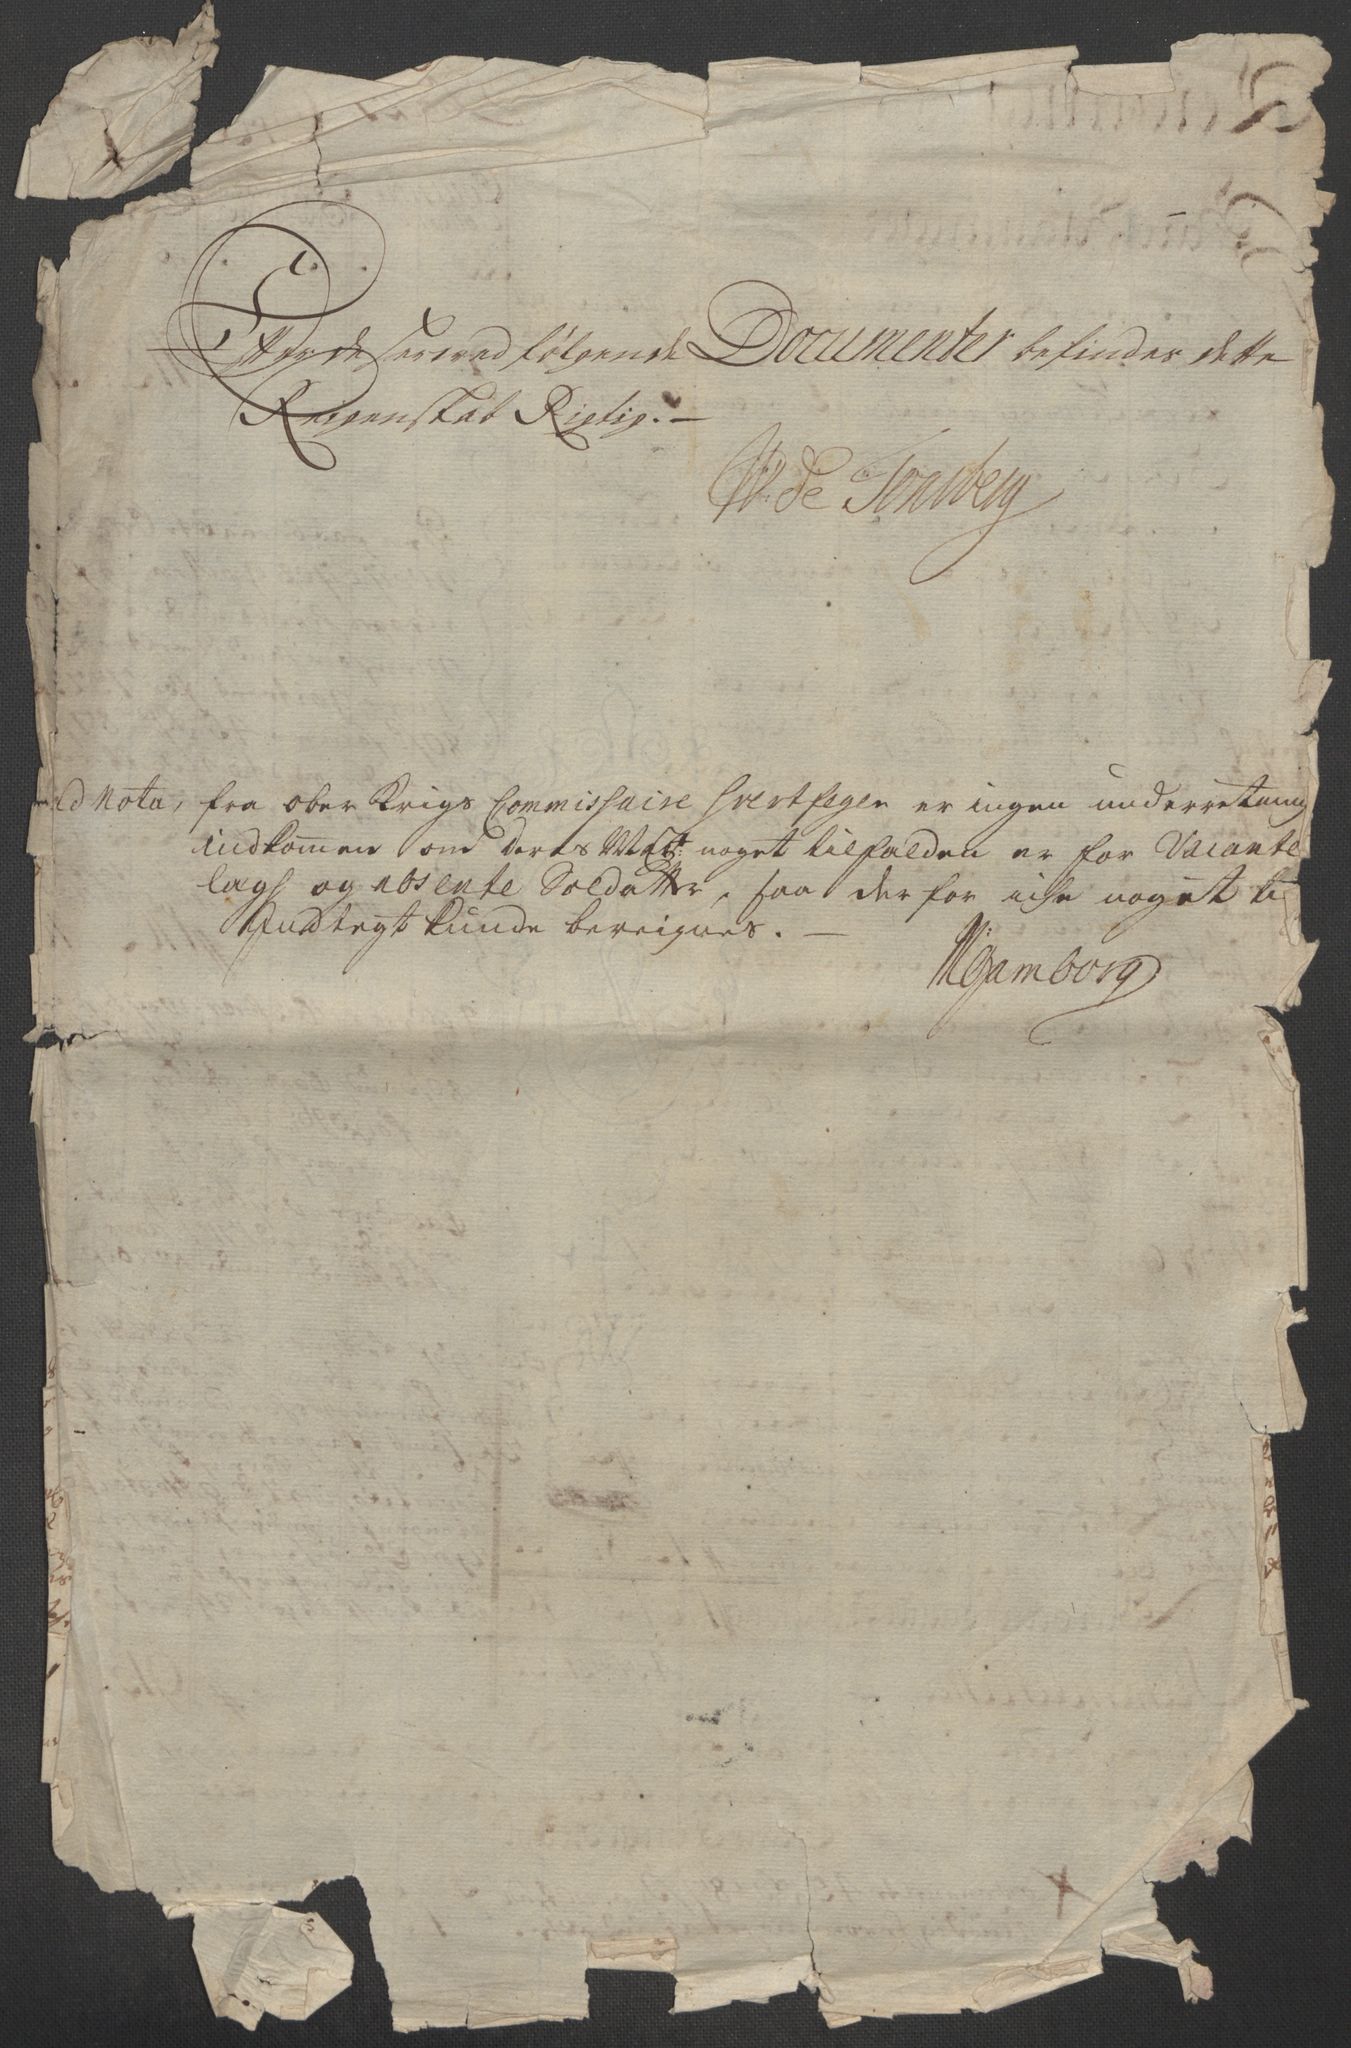 Efter de herved følgende Documenter befindes dette
Reigenskab Rigtig. —
W. de Tonsberg
ad Nota, fra ober Krigs Commissaire Svertfeger er ingen underretning
indkomen om Deris Maÿt: noget tilfalden er for Vacante
lægs og absente Soldatter, saa der for iche noget til
Indtegt kunde bereignes. —
N: Gamborg